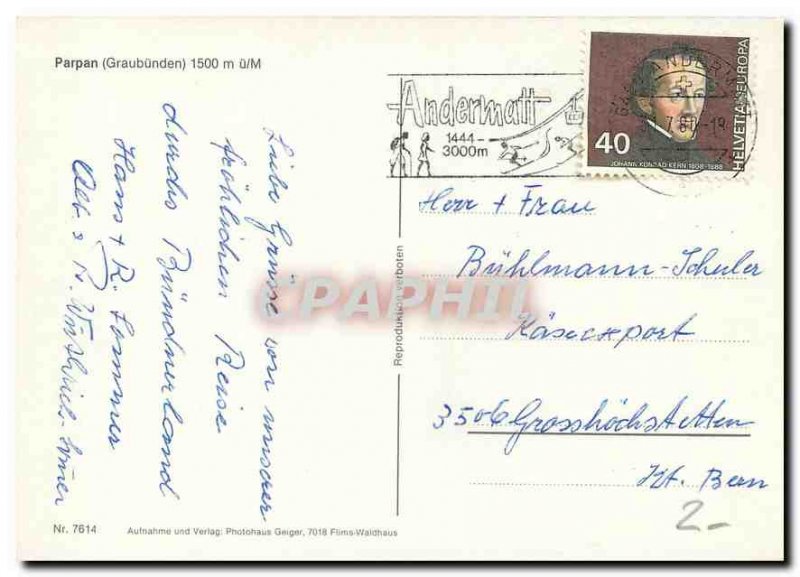 Parpan (Graubünden) 1500 m ü/M
Liebe Grüsse von unserer
fröhlichen Reise
durchs Bündnerland
Hans + R. Lommer
Andermatt
1444-
3000m
ANDERMATT
40
JOHANN KONRAD KERN 1808-1888
HELVETIA EUROPA
Herr + Frau
Bühlmann-Schuler
Käseexport
3506 Grosshöchstetten
Kt. Bern
2.-
Reproduktion verboten
CPAPHIL
Nr. 7614
Aufnahme und Verlag: Photohaus Geiger, 7018 Flims-Waldhaus